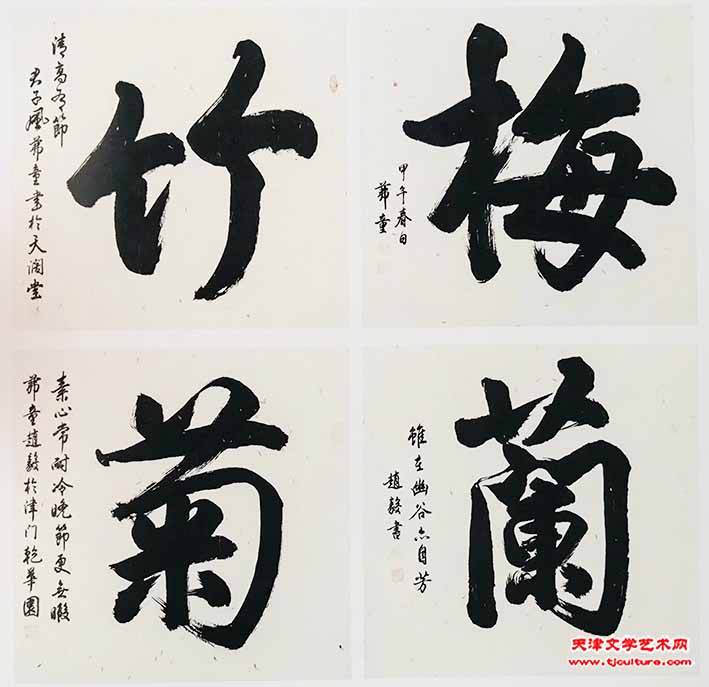 梅
甲午春日
童
竹
清高有節
君子風童書於天闊堂
蘭
雖在幽谷亦自芳
趙毅書
菊
素心常耐冷晚節更無瑕
童趙毅於津门乾華園
天津文学艺术网
www.tjculture.com